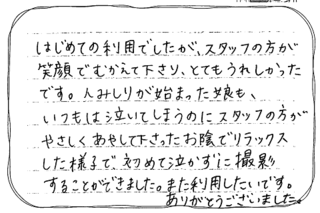 はじめての利用でしたが、スタッフの方が
笑顔でむかえて下さり、とてもうれしかった
です。人みしりが始まった娘も、
いつもは泣いてしまうのにスタッフの方が
やさしくあやして下さったお陰でリラックス
した様子で初めて泣かずに撮影
することができました。また利用したいです。
ありがとうございました。